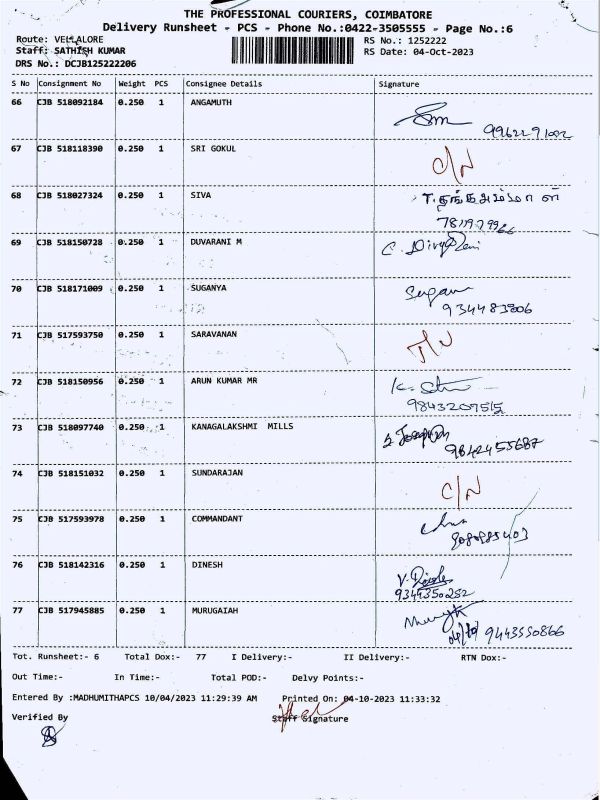 THE PROFESSIONAL COURIERS, COIMBATORE
Delivery Runsheet - PCS - Phone No.:0422-3505555 - Page No.:6
Route: VELLALORE RS No.: 1252222
Staff: SATHISH KUMAR RS Date: 04-Oct-2023
DRS No.: DCJB125222206
S No Consignment No Weight PCS Consignee Details Signature
66 CJB 518092184 0.250 1 ANGAMUTH
67 CJB 518118390 0.250 1 SRI GOKUL C/N
68 CJB 518027324 0.250 1 SIVA T. தங்கஅம்மாள்
69 CJB 518150728 0.250 1 DUVARANI M
70 CJB 518171009 0.250 1 SUGANYA
71 CJB 517593750 0.250 1 SARAVANAN
72 CJB 518150956 0.250 1 ARUN KUMAR MR
9843207515
73 CJB 518097740 0.250 1 KANAGALAKSHMI MILLS
9842455687
74 CJB 518151032 0.250 1 SUNDARAJAN C/N
75 CJB 517593978 0.250 1 COMMANDANT
76 CJB 518142316 0.250 1 DINESH
9344350252
77 CJB 517945885 0.250 1 MURUGAIAH
9443550866
Tot. Runsheet:- 6 Total Dox:- 77 I Delivery:- II Delivery:- RTN Dox:-
Out Time:- In Time:- Total POD:- Delvy Points:-
Entered By :MADHUMITHAPCS 10/04/2023 11:29:39 AM Printed On: 04-10-2023 11:33:32
Verified By Staff Signature